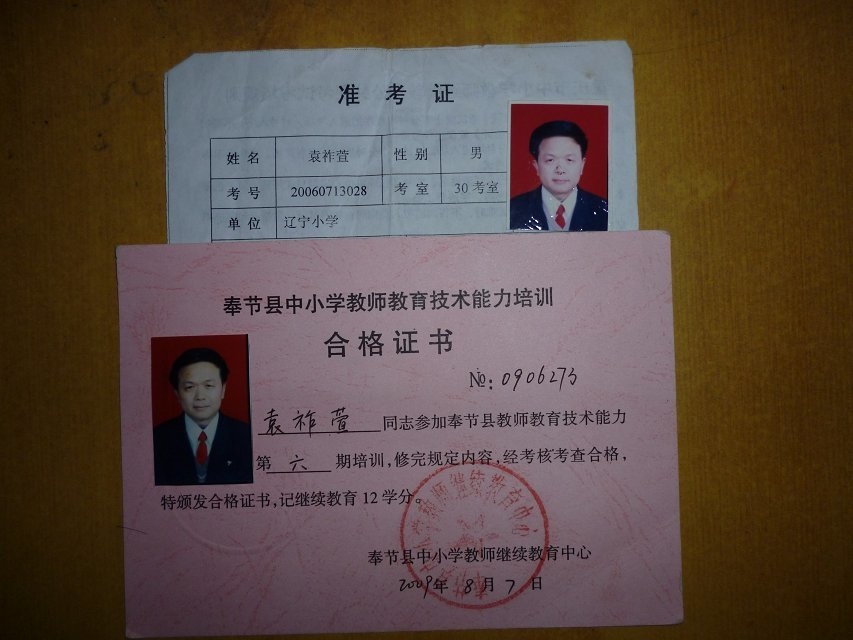 准考证
姓名 袁祚萱 性别 男
考号 20060713028 考室 30考室
单位 辽宁小学
奉节县中小学教师教育技术能力培训
合格证书
№:0906273
袁祚萱 同志参加奉节县教师教育技术能力
第 六 期培训,修完规定内容,经考核考查合格,
特颁发合格证书,记继续教育12学分。
奉节县中小学教师继续教育中心
2009年8月7日